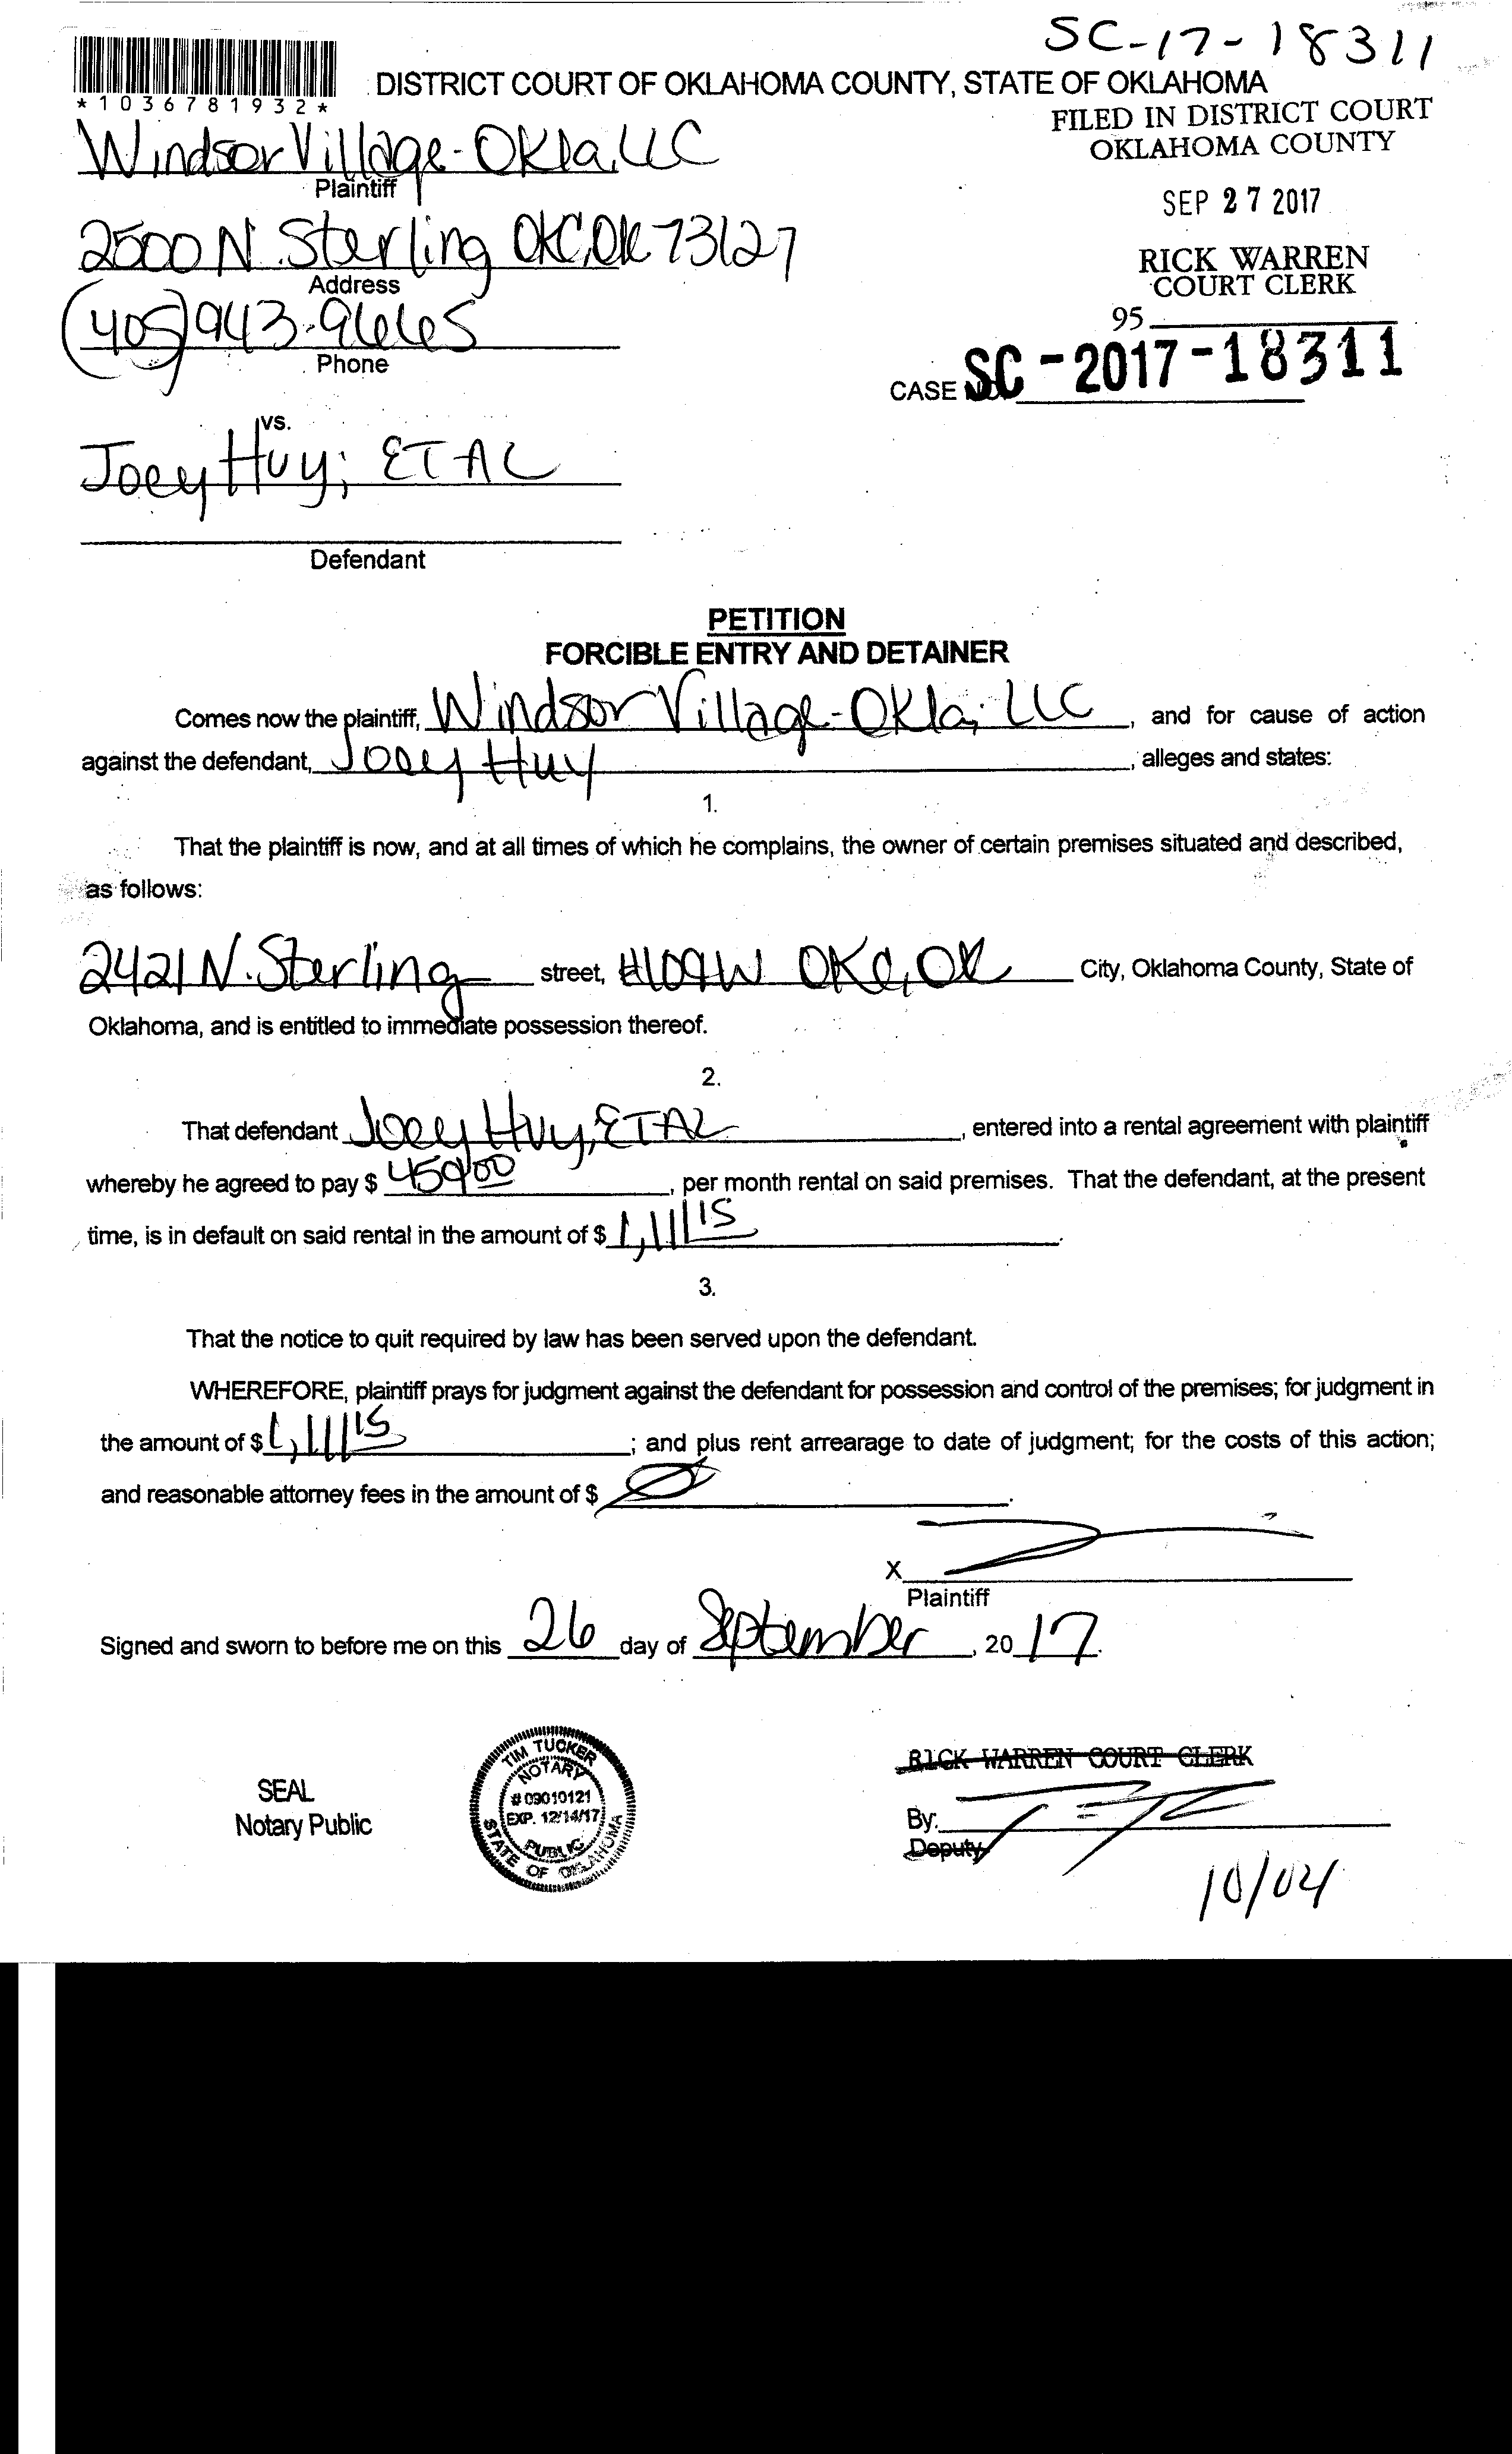 SC-17-18311
*1036781932*
DISTRICT COURT OF OKLAHOMA COUNTY, STATE OF OKLAHOMA
FILED IN DISTRICT COURT
OKLAHOMA COUNTY
Windsor Village-Okla, LLC
Plaintiff
SEP 27 2017
2500 N. Sterling OKC, OK 73127
Address
RICK WARREN
COURT CLERK
(405) 943-9665
Phone
95
CASE NO. SC-2017-18311
vs.
Joey Huy; ETAL
Defendant
PETITION
FORCIBLE ENTRY AND DETAINER
Comes now the plaintiff, Windsor Village-Okla, LLC, and for cause of action
against the defendant, Joey Huy, alleges and states:
1.
That the plaintiff is now, and at all times of which he complains, the owner of certain premises situated and described,
as follows:
2421 N. Sterling street, #109W OKC, OK City, Oklahoma County, State of
Oklahoma, and is entitled to immediate possession thereof.
2.
That defendant Joey Huy, ETAL, entered into a rental agreement with plaintiff
whereby he agreed to pay $ 459.00, per month rental on said premises. That the defendant, at the present
time, is in default on said rental in the amount of $ 1,111 15.
3.
That the notice to quit required by law has been served upon the defendant.
WHEREFORE, plaintiff prays for judgment against the defendant for possession and control of the premises; for judgment in
the amount of $ 1,111 15; and plus rent arrearage to date of judgment; for the costs of this action;
and reasonable attorney fees in the amount of $ Ø.
X
Plaintiff
Signed and sworn to before me on this 26 day of September, 2017.
SEAL
Notary Public
TIM TUCKER
NOTARY
# 09010121
EXP. 12/14/17
PUBLIC
STATE OF OKLAHOMA
RICK WARREN COURT CLERK
By:
Deputy
10/04